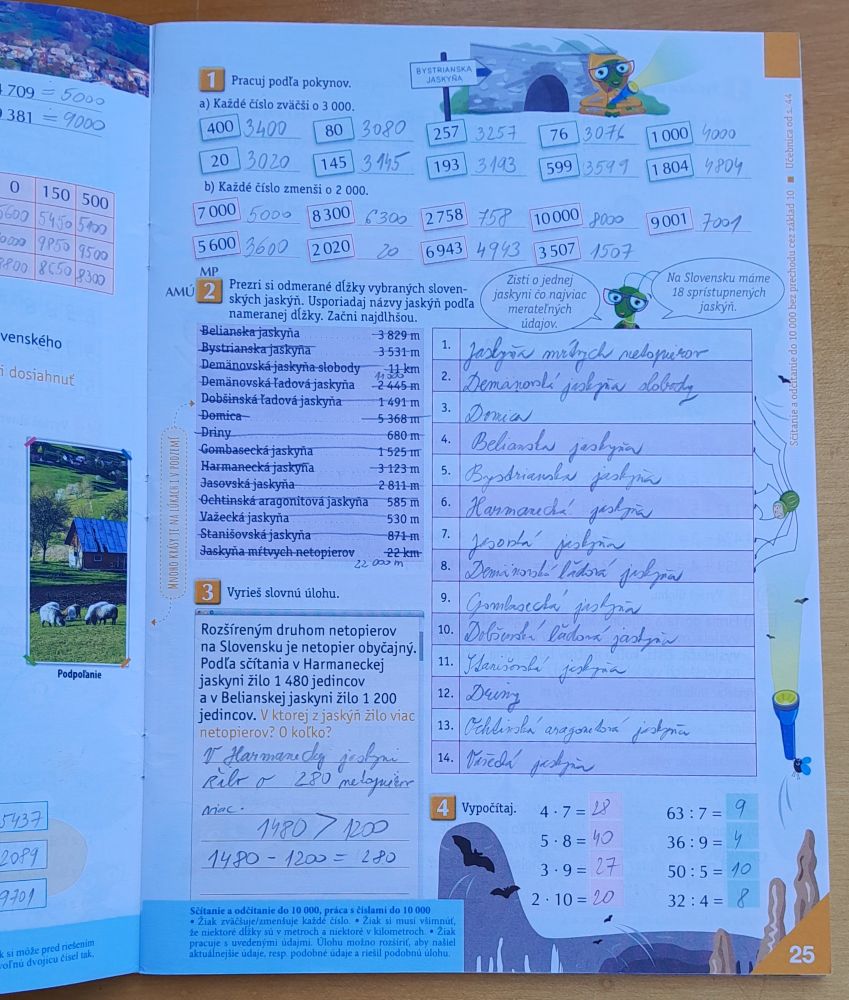 4 709 ≐ 5000
381 ≐ 9000
0 150 500
5600 5450 5100
9850 9500
8800 8650 8300
venského
i dosiahnuť
Podpoľanie
5437
2089
9701
k si môže pred riešením
voľnú dvojicu čísel tak,
MNOHO KRÁS JE NA LÚKACH I V PODZEMÍ
1 Pracuj podľa pokynov.
BYSTRIANSKA
JASKYŇA
a) Každé číslo zväčši o 3 000.
400 3400 80 3080 257 3257 76 3076 1 000 4000
20 3020 145 3145 193 3193 599 3599 1 804 4804
b) Každé číslo zmenši o 2 000.
7 000 5000 8 300 6300 2 758 758 10 000 8000 9 001 7001
5 600 3600 2 020 20 6 943 4943 3 507 1507
MP
AMÚ
2 Prezri si odmerané dĺžky vybraných sloven-
ských jaskýň. Usporiadaj názvy jaskýň podľa
nameranej dĺžky. Začni najdlhšou.
Zisti o jednej
jaskyni čo najviac
merateľných
údajov.
Na Slovensku máme
18 sprístupnených
jaskýň.
Belianska jaskyňa 3 829 m
Bystrianska jaskyňa 3 531 m
Demänovská jaskyňa slobody 11 km
11 000
Demänovská ľadová jaskyňa 2 445 m
Dobšinská ľadová jaskyňa 1 491 m
Domica 5 368 m
Driny 680 m
Gombasecká jaskyňa 1 525 m
Harmanecká jaskyňa 3 123 m
Jasovská jaskyňa 2 811 m
Ochtinská aragonitová jaskyňa 585 m
Važecká jaskyňa 530 m
Stanišovská jaskyňa 871 m
Jaskyňa mŕtvych netopierov 22 km
22 000 m
1. Jaskyňa mŕtvych netopierov
2. Demänovská jaskyňa slobody
3. Domica
4. Belianska jaskyňa
5. Bystrianska jaskyňa
6. Harmanecká jaskyňa
7. Jasovská jaskyňa
8. Demänovská ľadová jaskyňa
9. Gombasecká jaskyňa
10. Dobšinská ľadová jaskyňa
11. Stanišovská jaskyňa
12. Driny
13. Ochtinská aragonitová jaskyňa
14. Važecká jaskyňa
3 Vyrieš slovnú úlohu.
Rozšíreným druhom netopierov
na Slovensku je netopier obyčajný.
Podľa sčítania v Harmaneckej
jaskyni žilo 1 480 jedincov
a v Belianskej jaskyni žilo 1 200
jedincov. V ktorej z jaskýň žilo viac
netopierov? O koľko?
V Harmanecky jaskyni
žilo o 280 netopierov
viac.
1480 > 1200
1480 - 1200 = 280
4 Vypočítaj.
4 · 7 = 28 63 : 7 = 9
5 · 8 = 40 36 : 9 = 4
3 · 9 = 27 50 : 5 = 10
2 · 10 = 20 32 : 4 = 8
Sčítanie a odčítanie do 10 000, práca s číslami do 10 000
• Žiak zväčšuje/zmenšuje každé číslo. • Žiak si musí všimnúť,
že niektoré dĺžky sú v metroch a niektoré v kilometroch. • Žiak
pracuje s uvedenými údajmi. Úlohu možno rozšíriť, aby našiel
aktuálnejšie údaje, resp. podobné údaje a riešil podobnú úlohu.
Sčítanie a odčítanie do 10 000 bez prechodu cez základ 10 ■ Učebnica od s. 44
25